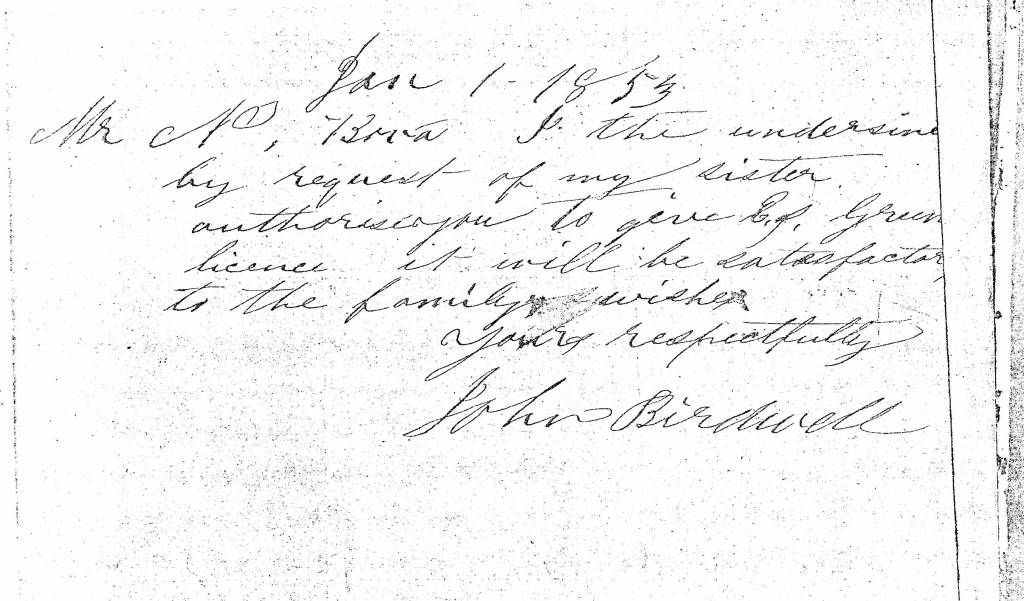 Jan 1 - 1853
Mr ND, Bova I the undersine
by request of my sister
authorise you to give E. J. Green
licence it will be satesfactor
to the familys wishes
Yours respectfully
John Birdwell